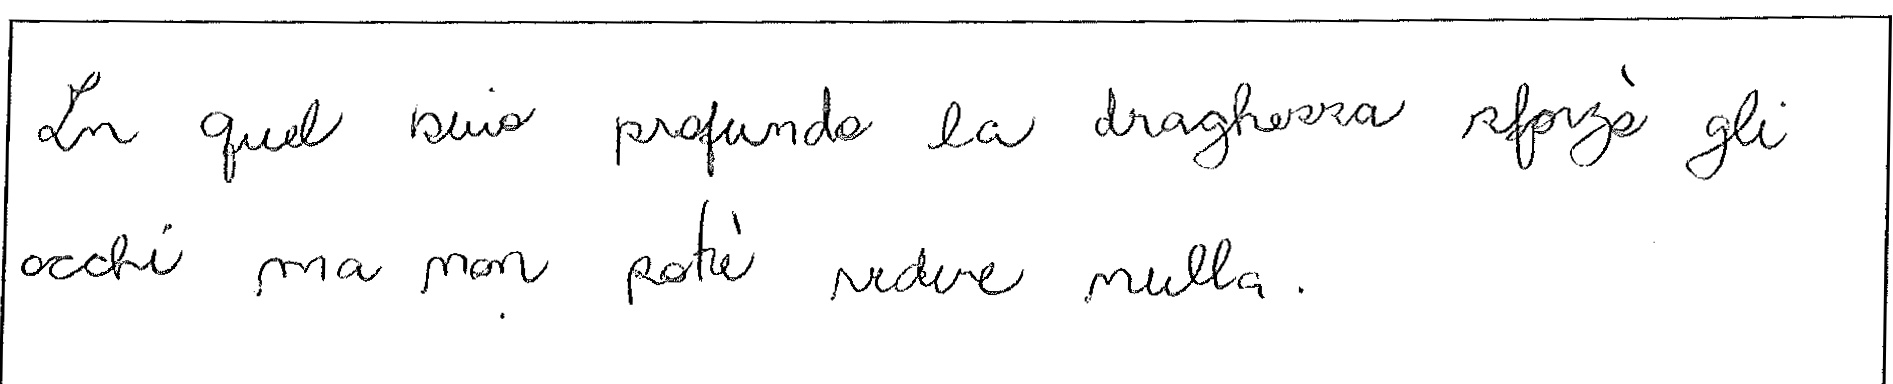 In quel buio profundo la draghessa sforzò gli
occhi ma non potè vedere nulla.